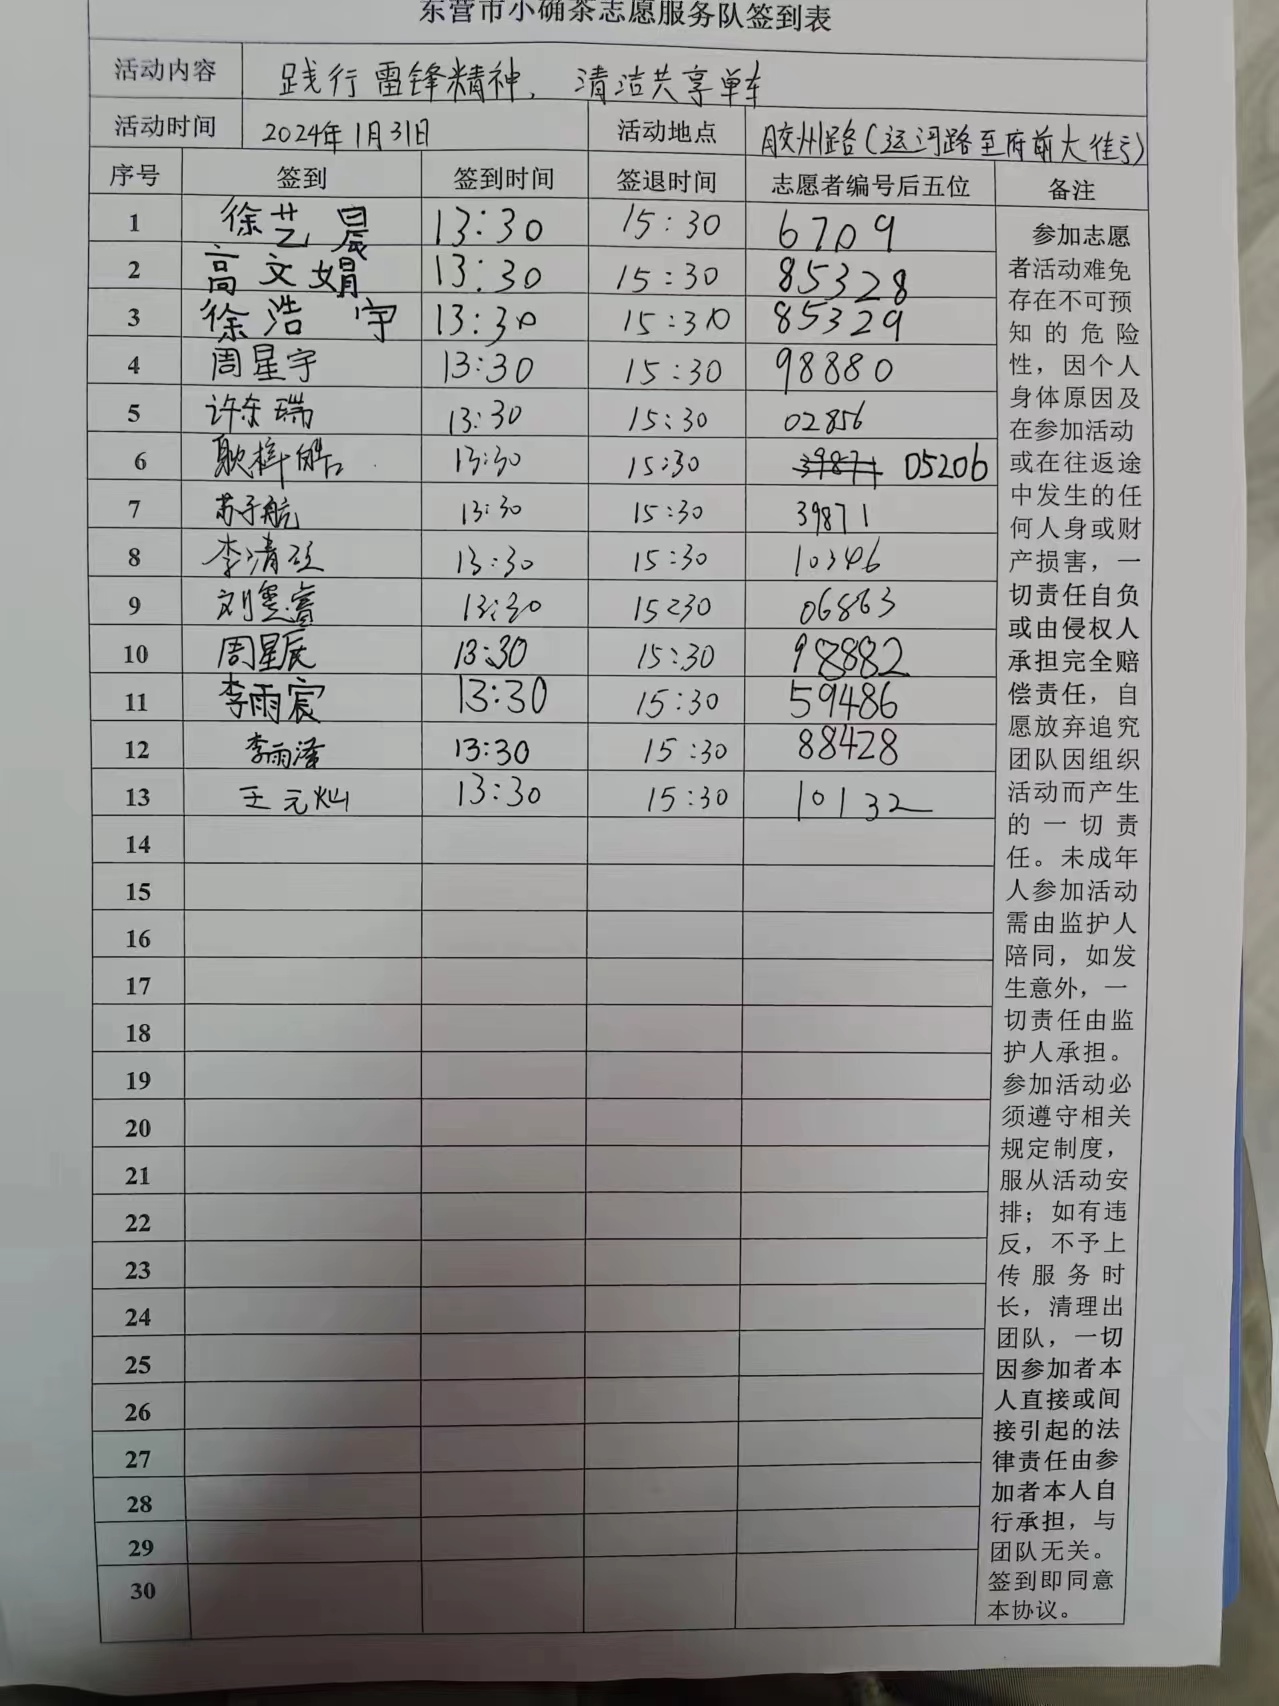 东营市小确茶志愿服务队签到表
活动内容 践行雷锋精神、清洁共享单车
活动时间 2024年1月31日 活动地点 胶州路(运河路至府前大街)
序号 签到 签到时间 签退时间 志愿者编号后五位 备注
1 徐艺晨 13:30 15:30 6709
2 高文娟 13:30 15:30 85328
3 徐浩宇 13:30 15:30 85329
4 周星宇 13:30 15:30 98880
5 许东瑞 13:30 15:30 02856
6 耿梓皓 13:30 15:30 39871 05206
7 苏子航 13:30 15:30 39871
8 李清 13:30 15:30 10346
9 刘昱睿 13:30 15:30 06863
10 周星辰 13:30 15:30 98882
11 李雨宸 13:30 15:30 59486
12 李雨泽 13:30 15:30 88428
13 王元灿 13:30 15:30 10132
14
15
16
17
18
19
20
21
22
23
24
25
26
27
28
29
30
参加志愿
者活动难免
存在不可预
知的危险
性，因个人
身体原因及
在参加活动
或在往返途
中发生的任
何人身或财
产损害，一
切责任自负
或由侵权人
承担完全赔
偿责任，自
愿放弃追究
团队因组织
活动而产生
的一切责
任。未成年
人参加活动
需由监护人
陪同，如发
生意外，一
切责任由监
护人承担。
参加活动必
须遵守相关
规定制度，
服从活动安
排；如有违
反，不予上
传服务时
长，清理出
团队，一切
因参加者本
人直接或间
接引起的法
律责任由参
加者本人自
行承担，与
团队无关。
签到即同意
本协议。